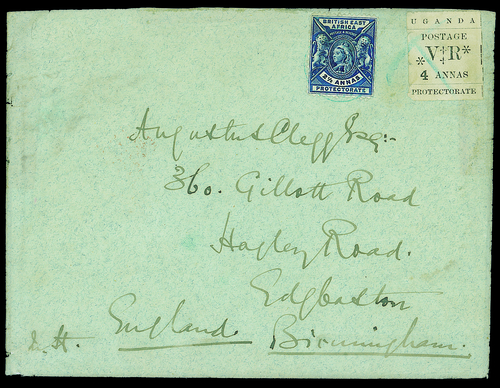 BRITISH EAST
AFRICA
POSTAGE & REVENUE
2½ ANNAS
PROTECTORATE
UGANDA
POSTAGE
*V†R*
4 ANNAS
PROTECTORATE
Augustus Clegg Esq:-
360. Gillott Road
Hagley Road.
Edgbaston
England. Birmingham.